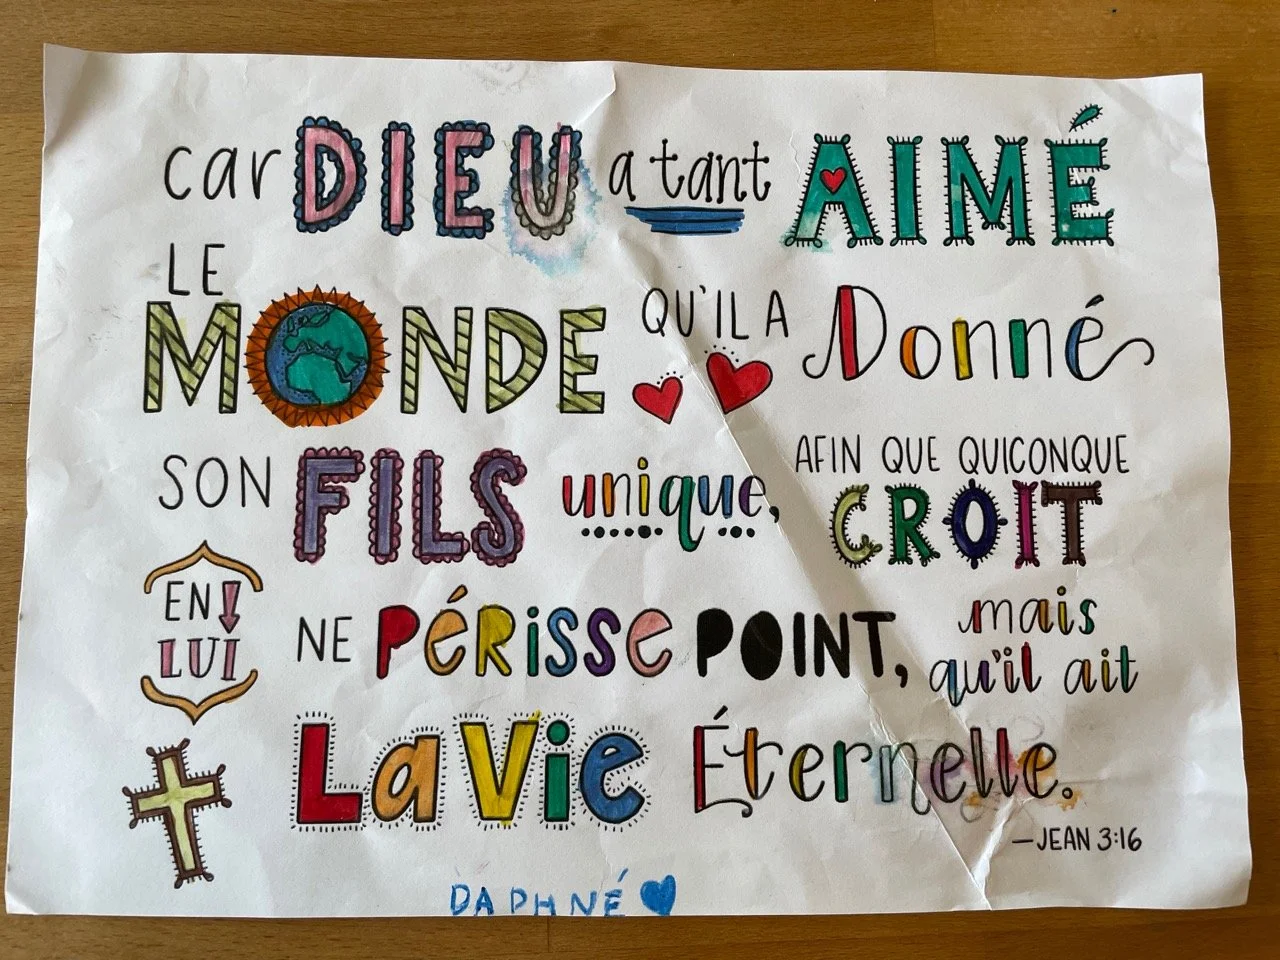 car DIEU a tant AIMÉ
LE MONDE QU'IL A Donné
SON FILS unique, AFIN QUE QUICONQUE CROIT
EN LUI NE PÉRISSE POINT, mais qu'il ait
La Vie Éternelle.
—JEAN 3:16
DAPHNÉ